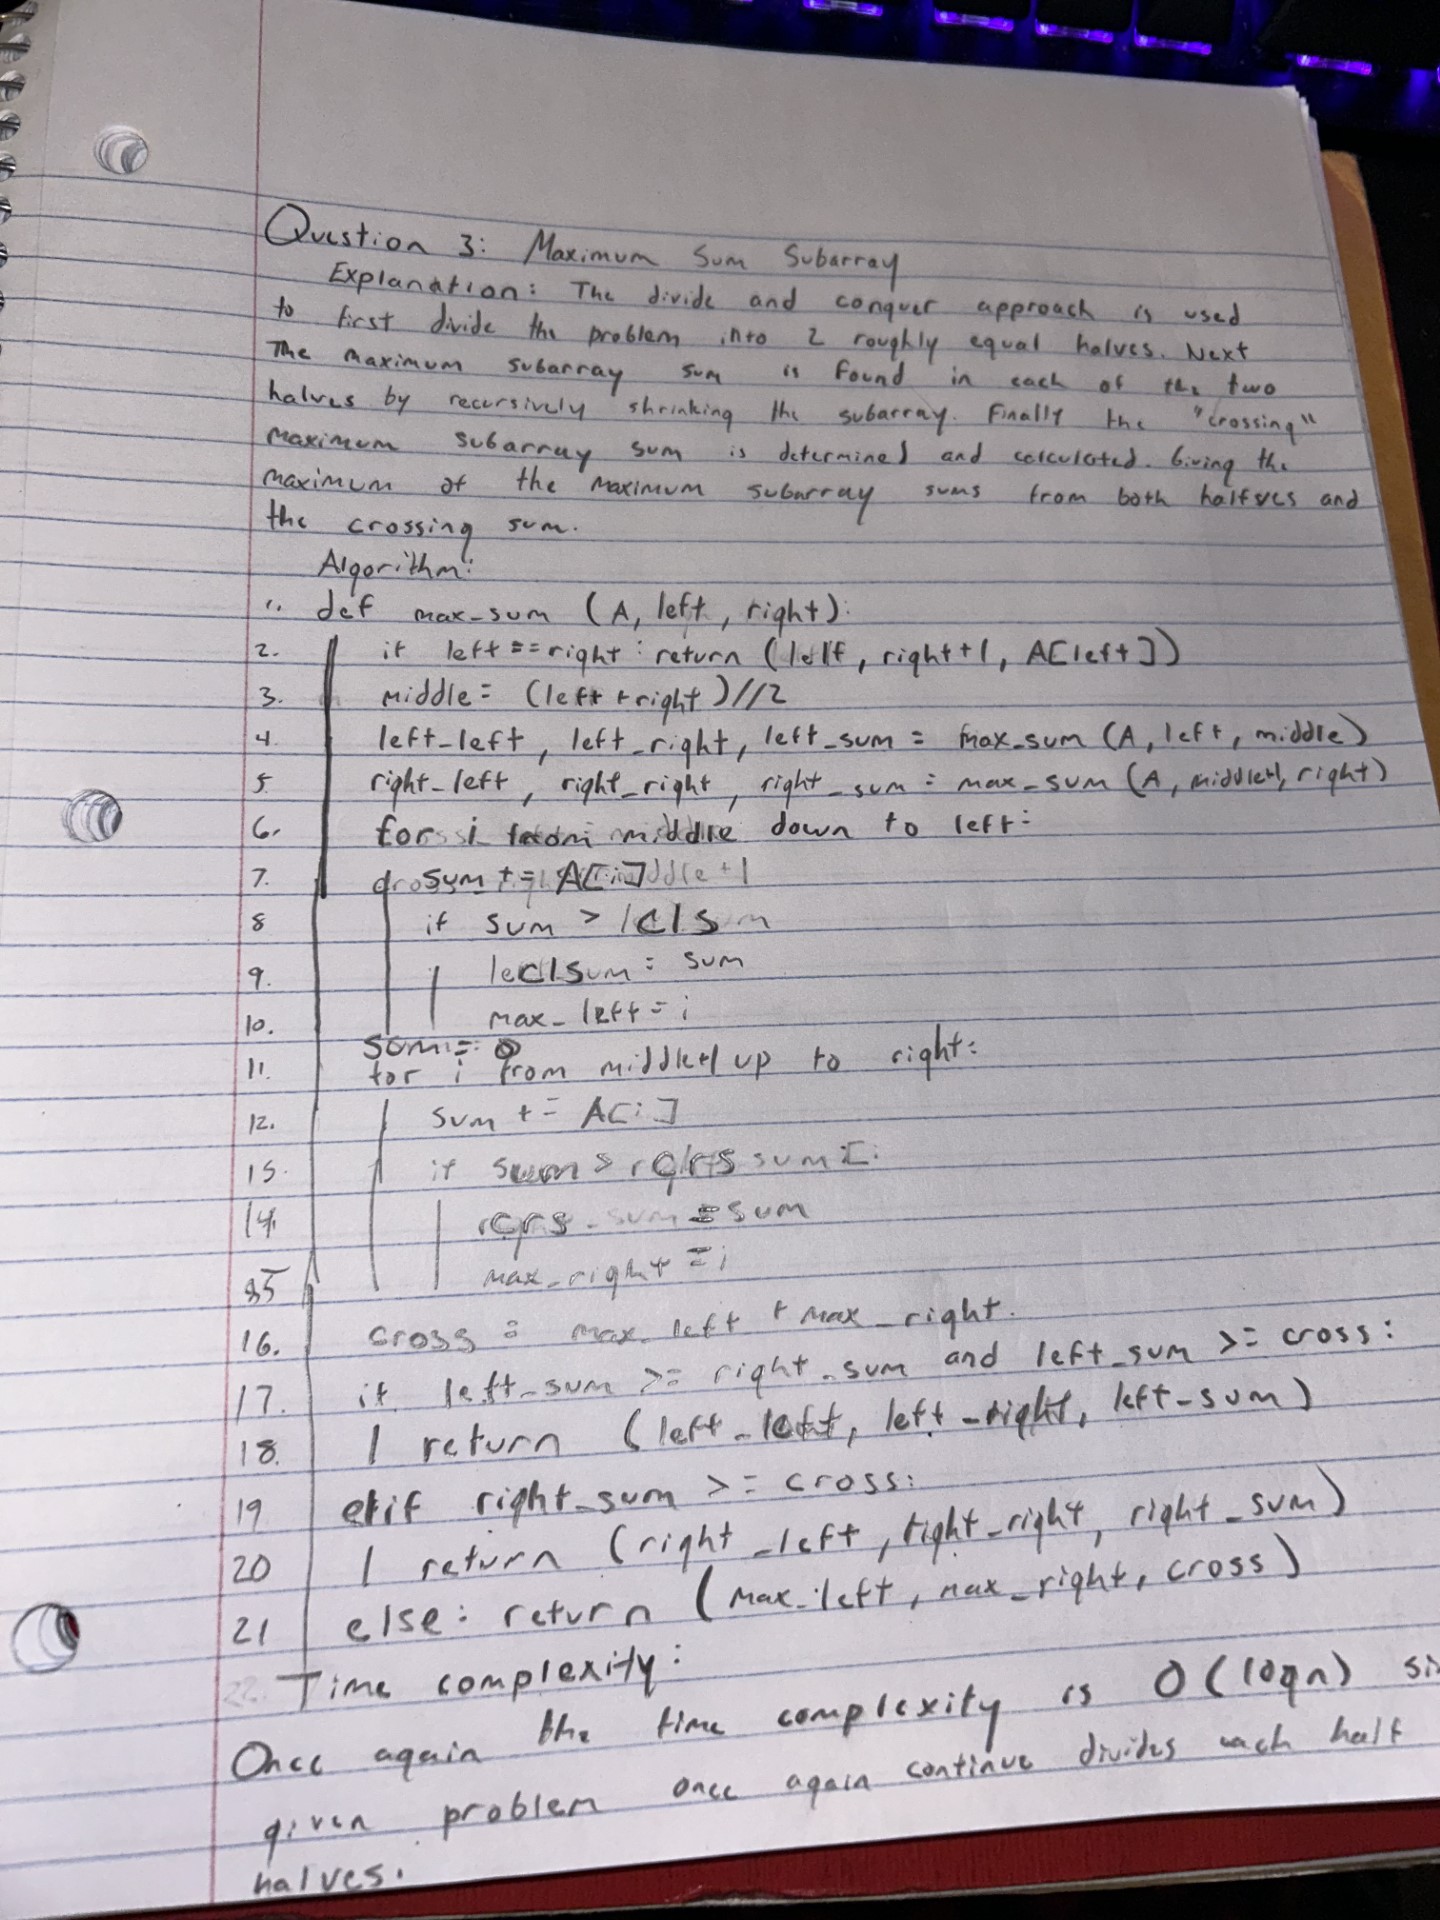 Question 3: Maximum Sum Subarray
Explanation: The divide and conquer approach is used
to first divide the problem into 2 roughly equal halves. Next
The maximum subarray sum is found in each of the two
halves by recursively shrinking the subarray. Finally the "crossing"
maximum subarray sum is determined and calculated. Giving the
maximum of the maximum subarray sums from both halfves and
the crossing sum.
Algorithm:
1. def max_sum (A, left, right):
2. if left == right: return (left, right+1, A[left])
3. middle = (left + right)//2
4. left_left, left_right, left_sum = max_sum (A, left, middle)
5. right_left, right_right, right_sum = max_sum (A, middle+1, right)
6. for i from middle down to left:
7. sum += A[i]
8 if sum > lcls
9. lclsum = sum
10. max_left = i
sum = 0
11. for i from middle+1 up to right:
12. sum += A[i]
15. if sum > sum:
14. sum = sum
15 max_right = i
16. cross = max_left + max_right.
17. if left_sum >= right_sum and left_sum >= cross:
18. return (left_left, left_right, left_sum)
19 elif right_sum >= cross:
20 return (right_left, right_right, right_sum)
21 else: return (max_left, max_right, cross)
22. Time complexity:
Once again the time complexity is O(logn)
given problem once again continue divides each half
halves.